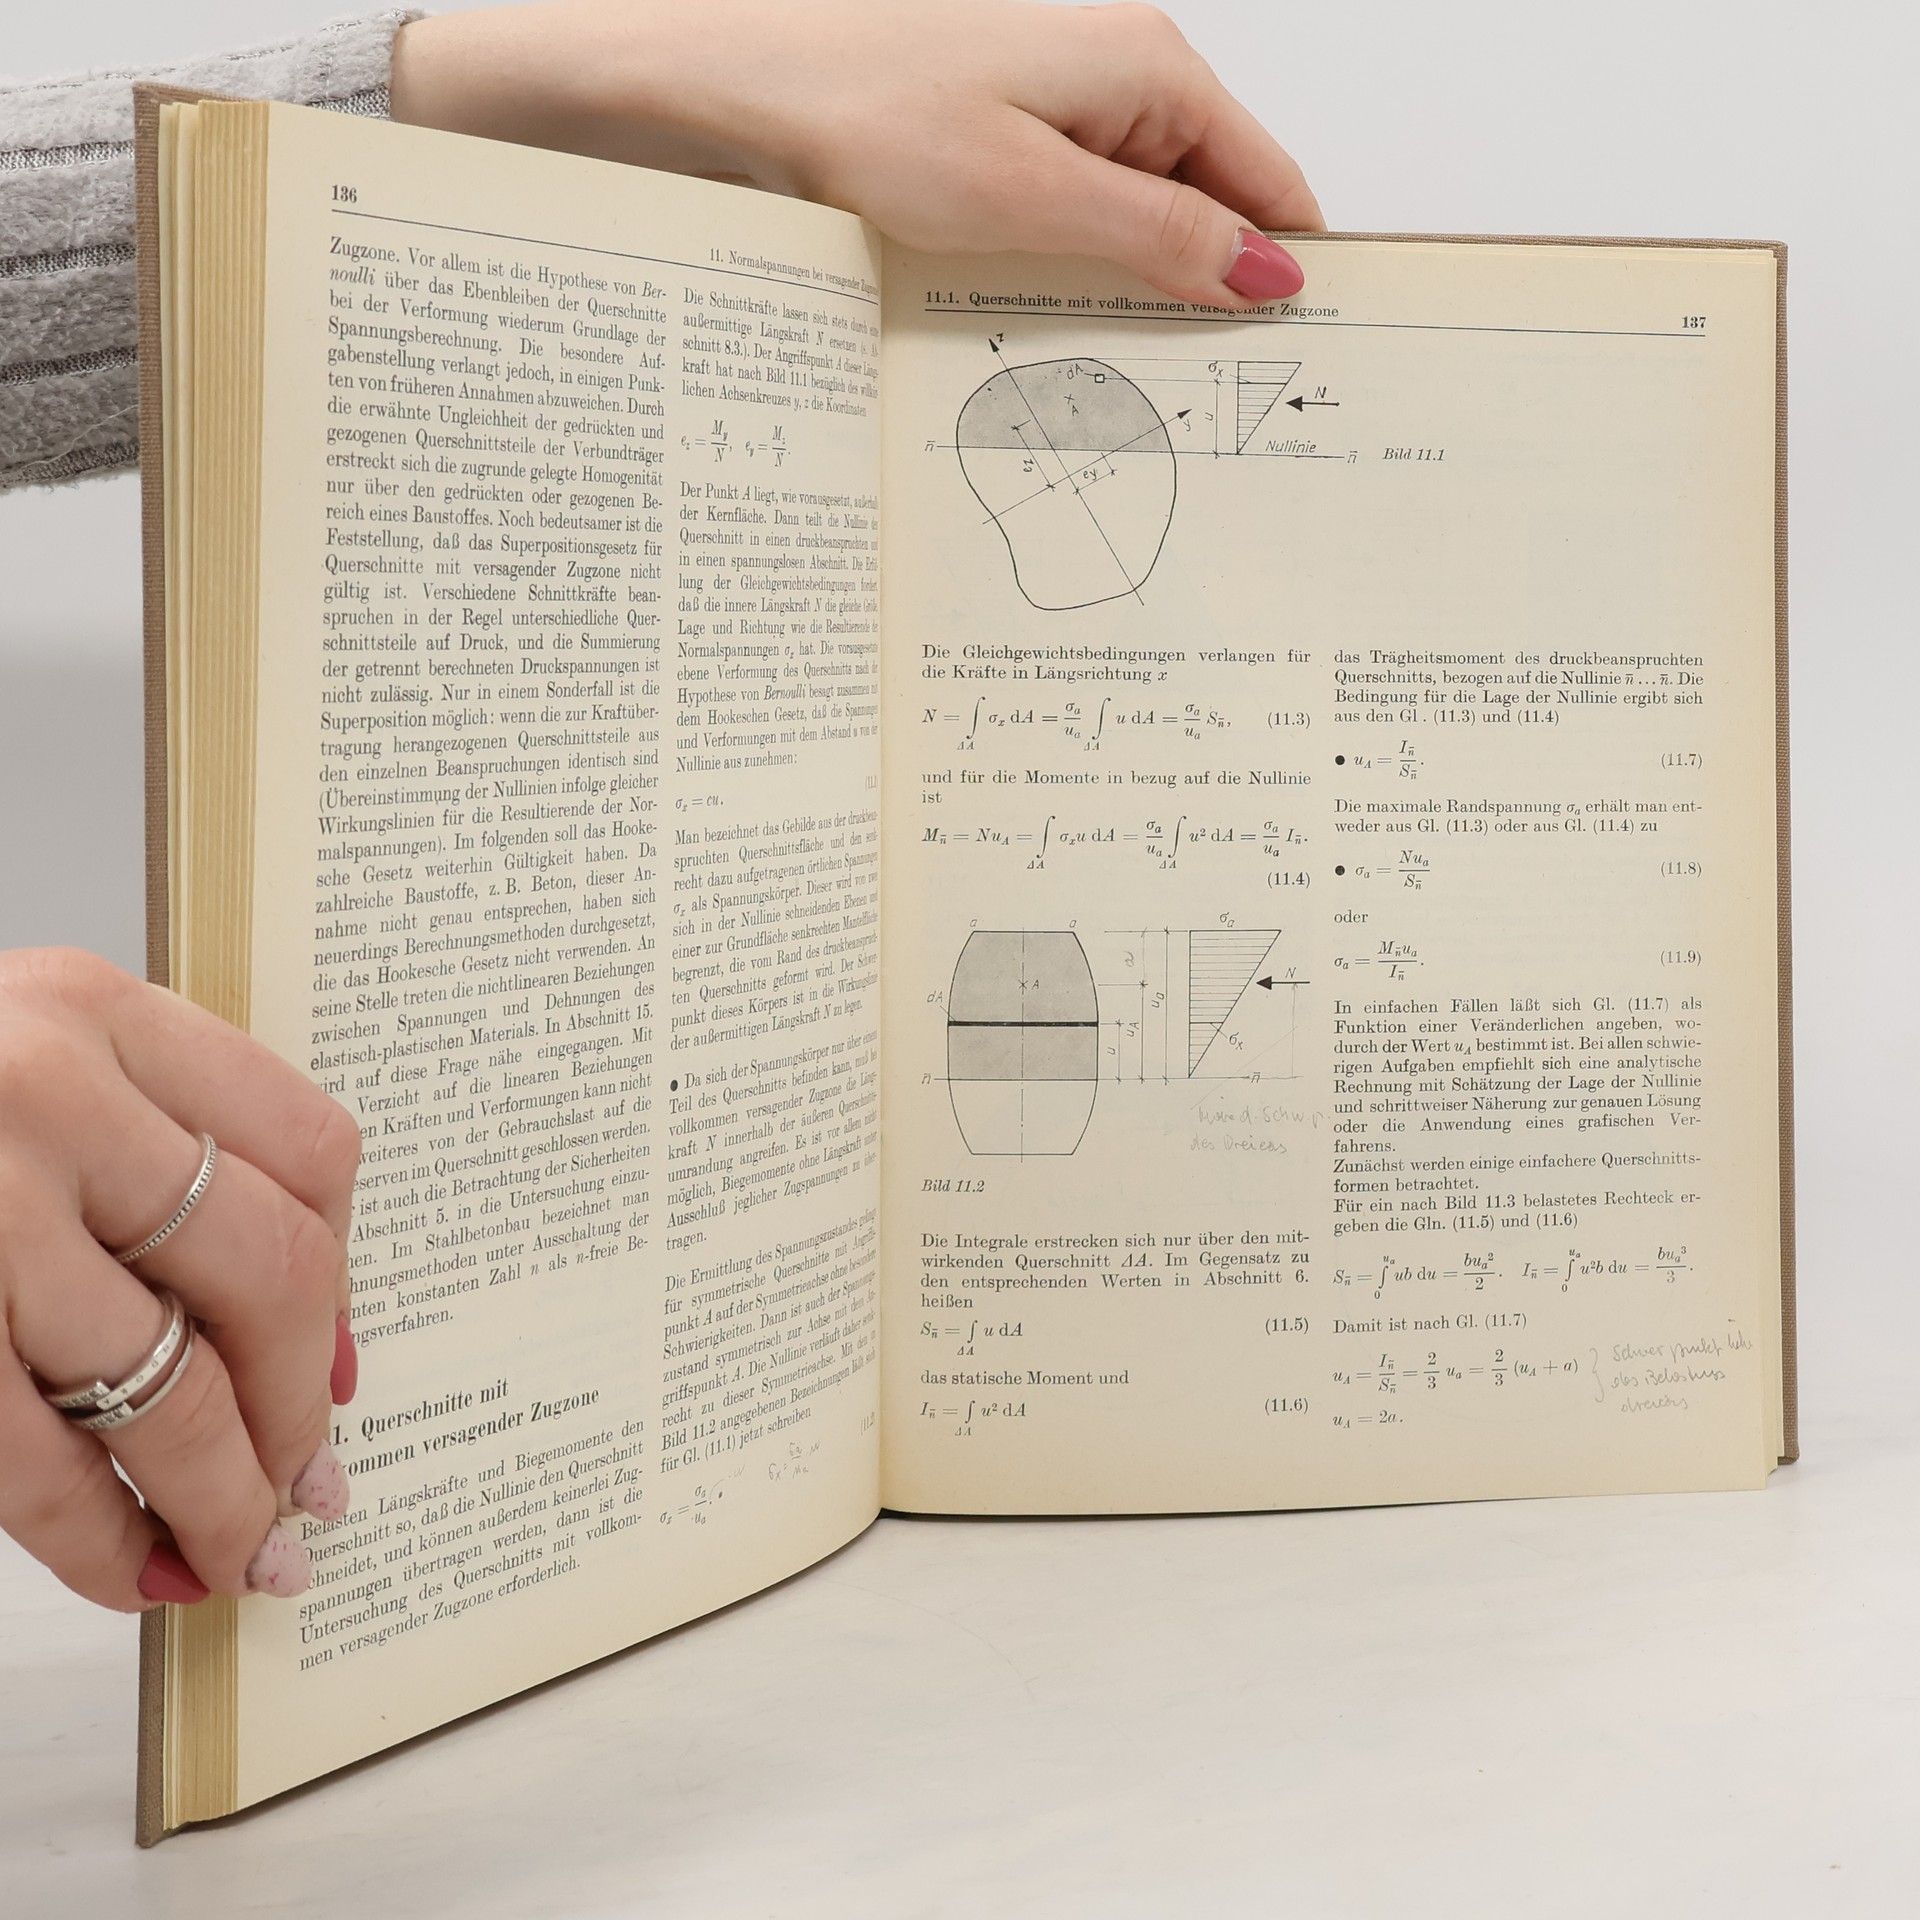 136
11. Normalspannungen bei versagender
Zugzone. Vor allem ist die Hypothese von Ber-
noulli über das Ebenbleiben der Querschnitte
bei der Verformung wiederum Grundlage der
Spannungsberechnung. Die besondere Auf-
gabenstellung verlangt jedoch, in einigen Punk-
ten von früheren Annahmen abzuweichen. Durch
die erwähnte Ungleichheit der gedrückten und
gezogenen Querschnittsteile der Verbundträger
erstreckt sich die zugrunde gelegte Homogenität
nur über den gedrückten oder gezogenen Be-
reich eines Baustoffes. Noch bedeutsamer ist die
Feststellung, daß das Superpositionsgesetz für
Querschnitte mit versagender Zugzone nicht
gültig ist. Verschiedene Schnittkräfte bean-
spruchen in der Regel unterschiedliche Quer-
schnittsteile auf Druck, und die Summierung
der getrennt berechneten Druckspannungen ist
nicht zulässig. Nur in einem Sonderfall ist die
Superposition möglich: wenn die zur Kraftüber-
tragung herangezogenen Querschnittsteile aus
den einzelnen Beanspruchungen identisch sind
(Übereinstimmung der Nullinien infolge gleicher
Wirkungslinien für die Resultierende der Nor-
malspannungen). Im folgenden soll das Hooke-
sche Gesetz weiterhin Gültigkeit haben. Da
zahlreiche Baustoffe, z. B. Beton, dieser An-
nahme nicht genau entsprechen, haben sich
neuerdings Berechnungsmethoden durchgesetzt,
die das Hookesche Gesetz nicht verwenden. An
seine Stelle treten die nichtlinearen Beziehungen
zwischen Spannungen und Dehnungen des
elastisch-plastischen Materials. In Abschnitt 15.
wird auf diese Frage nähe eingegangen. Mit
Verzicht auf die linearen Beziehungen
en Kräften und Verformungen kann nicht
weiteres von der Gebrauchslast auf die
eserven im Querschnitt geschlossen werden.
ist auch die Betrachtung der Sicherheiten
Abschnitt 5. in die Untersuchung einzu-
hen. Im Stahlbetonbau bezeichnet man
hnungsmethoden unter Ausschaltung der
nten konstanten Zahl n als n-freie Be-
ngsverfahren.
1. Querschnitte mit
kommen versagender Zugzone
Belasten Längskräfte und Biegemomente den
Querschnitt so, daß die Nullinie den Querschnitt
schneidet, und können außerdem keinerlei Zug-
spannungen übertragen werden, dann ist die
Untersuchung des Querschnitts mit vollkom-
men versagender Zugzone erforderlich.
Die Schnittkräfte lassen sich stets durch
außermittige Längskraft N ersetzen (s.
schnitt 8.3.). Der Angriffspunkt A dieser Längs-
kraft hat nach Bild 11.1 bezüglich des
lichen Achsenkreuzes y, z die Koordinaten
e_z = M_y/N, e_y = M_z/N.
Der Punkt A liegt, wie vorausgesetzt, außerhalb
der Kernfläche. Dann teilt die Nullinie den
Querschnitt in einen druckbeanspruchten und
in einen spannungslosen Abschnitt. Die Erfül-
lung der Gleichgewichtsbedingungen fordert,
daß die innere Längskraft N die gleiche Größe,
Lage und Richtung wie die Resultierende der
Normalspannungen σ_x hat. Die vorausgesetzte
ebene Verformung des Querschnitts nach der
Hypothese von Bernoulli besagt zusammen mit
dem Hookeschen Gesetz, daß die Spannungen
und Verformungen mit dem Abstand u von der
Nullinie aus zunehmen:
σ_x = cu.
Man bezeichnet das Gebilde aus der druckbean-
spruchten Querschnittsfläche und den senk-
recht dazu aufgetragenen örtlichen Spannungen
σ_x als Spannungskörper. Dieser wird von zwei
sich in der Nullinie schneidenden Ebenen und
einer zur Grundfläche senkrechten Mantelfläche
begrenzt, die vom Rand des druckbeanspruch-
ten Querschnitts geformt wird. Der Schwer-
punkt dieses Körpers ist in die Wirkungslinie
der außermittigen Längskraft N zu legen.
● Da sich der Spannungskörper nur über einem
Teil des Querschnitts befinden kann, muß bei
vollkommen versagender Zugzone die Längs-
kraft N innerhalb der äußeren Querschnitts-
umrandung angreifen. Es ist vor allem nicht
möglich, Biegemomente ohne Längskraft unter
Ausschluß jeglicher Zugspannungen zu über-
tragen.
Die Ermittlung des Spannungszustandes gelingt
für symmetrische Querschnitte mit Angriffs-
punkt A auf der Symmetrieachse ohne besondere
Schwierigkeiten. Dann ist auch der Spannungs-
zustand symmetrisch zur Achse mit dem An-
griffspunkt A. Die Nullinie verläuft daher senk-
recht zu dieser Symmetrieachse. Mit den in
Bild 11.2 angegebenen Bezeichnungen läßt sich
für Gl. (11.1) jetzt schreiben
σ_x = σ_a/u_a ·
11.1. Querschnitte mit vollkommen versagender Zugzone
137
z
dA
A
y
e_z
e_y
σ_x
u
N
Nullinie
n̄
n̄
Bild 11.1
Die Gleichgewichtsbedingungen verlangen für
die Kräfte in Längsrichtung x
N = ∫_ΔA σ_x dA = σ_a/u_a ∫_ΔA u dA = σ_a/u_a S_n̄, (11.3)
und für die Momente in bezug auf die Nullinie
ist
M_n̄ = Nu_A = ∫_ΔA σ_x u dA = σ_a/u_a ∫_ΔA u² dA = σ_a/u_a I_n̄.
(11.4)
a a
dA
A
n̄
a
u
u_A
u_a
σ_a
N
σ_x
n̄
des Dreiecks
Bild 11.2
Die Integrale erstrecken sich nur über den mit-
wirkenden Querschnitt ΔA. Im Gegensatz zu
den entsprechenden Werten in Abschnitt 6.
heißen
S_n̄ = ∫_ΔA u dA (11.5)
das statische Moment und
I_n̄ = ∫_ΔA u² dA (11.6)
das Trägheitsmoment des druckbeanspruchten
Querschnitts, bezogen auf die Nullinie n̄ ... n̄. Die
Bedingung für die Lage der Nullinie ergibt sich
aus den Gl . (11.3) und (11.4)
● u_A = I_n̄/S_n̄. (11.7)
Die maximale Randspannung σ_a erhält man ent-
weder aus Gl. (11.3) oder aus Gl. (11.4) zu
● σ_a = Nu_a/S_n̄ (11.8)
oder
σ_a = M_n̄u_a/I_n̄. (11.9)
In einfachen Fällen läßt sich Gl. (11.7) als
Funktion einer Veränderlichen angeben, wo-
durch der Wert u_A bestimmt ist. Bei allen schwie-
rigen Aufgaben empfiehlt sich eine analytische
Rechnung mit Schätzung der Lage der Nullinie
und schrittweiser Näherung zur genauen Lösung
oder die Anwendung eines grafischen Ver-
fahrens.
Zunächst werden einige einfachere Querschnitts-
formen betrachtet.
Für ein nach Bild 11.3 belastetes Rechteck er-
geben die Gln. (11.5) und (11.6)
S_n̄ = ∫_0^u_a ub du = bu_a²/2. I_n̄ = ∫_0^u_a u²b du = bu_a³/3.
Damit ist nach Gl. (11.7)
u_A = I_n̄/S_n̄ = 2/3 u_a = 2/3 (u_A + a)
u_A = 2a.
Schwerpunkt
des Belastungs
dreiecks